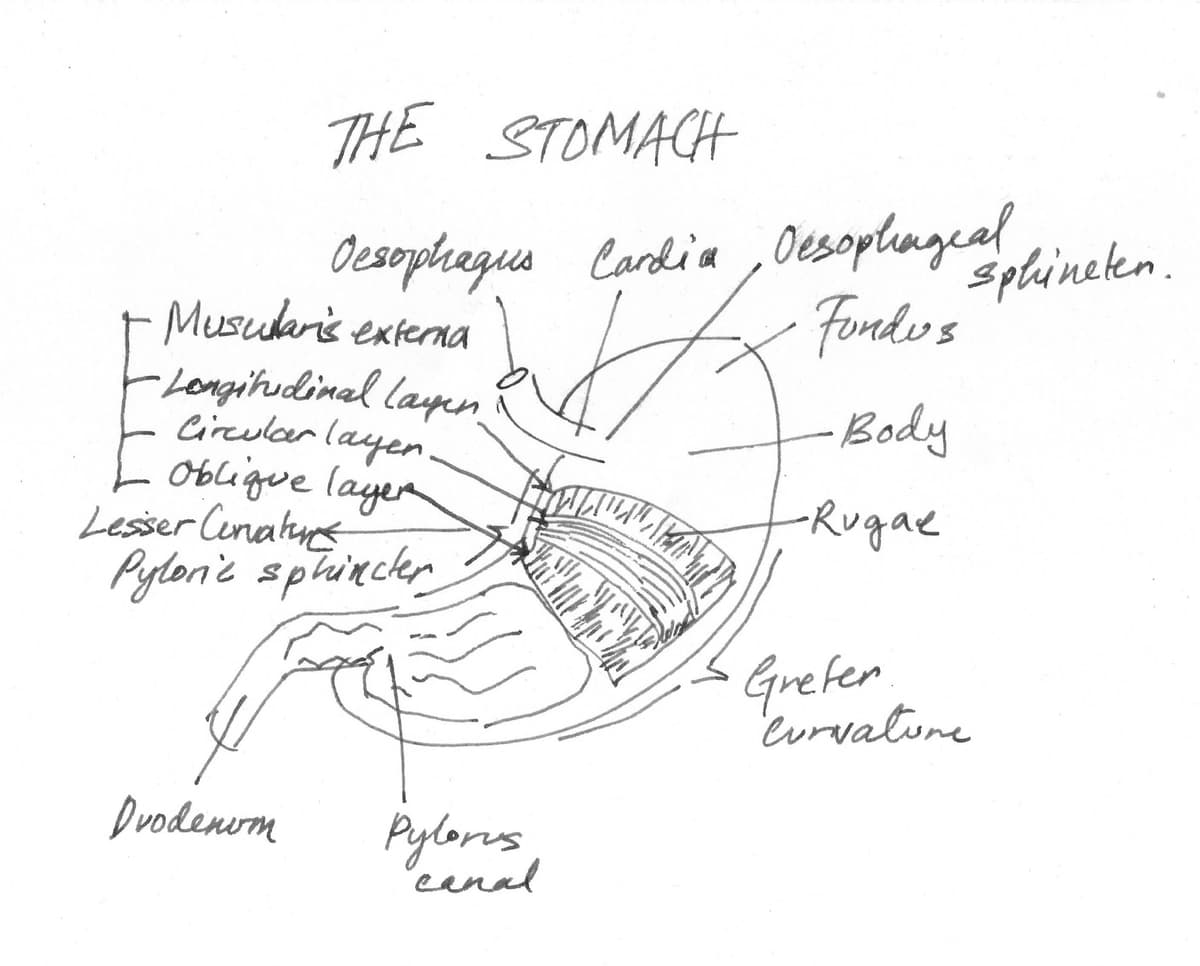 THE STOMACH
Oesophagus
Cardia
Oesophageal
sphineter.
Muscularis externa
Fundus
Longitudinal layer
Circular layer
Body
Oblique layer
Lesser Curvature
Rugae
Pyloric sphincter
Greter
curvature
Duodenum
Pylorus
canal